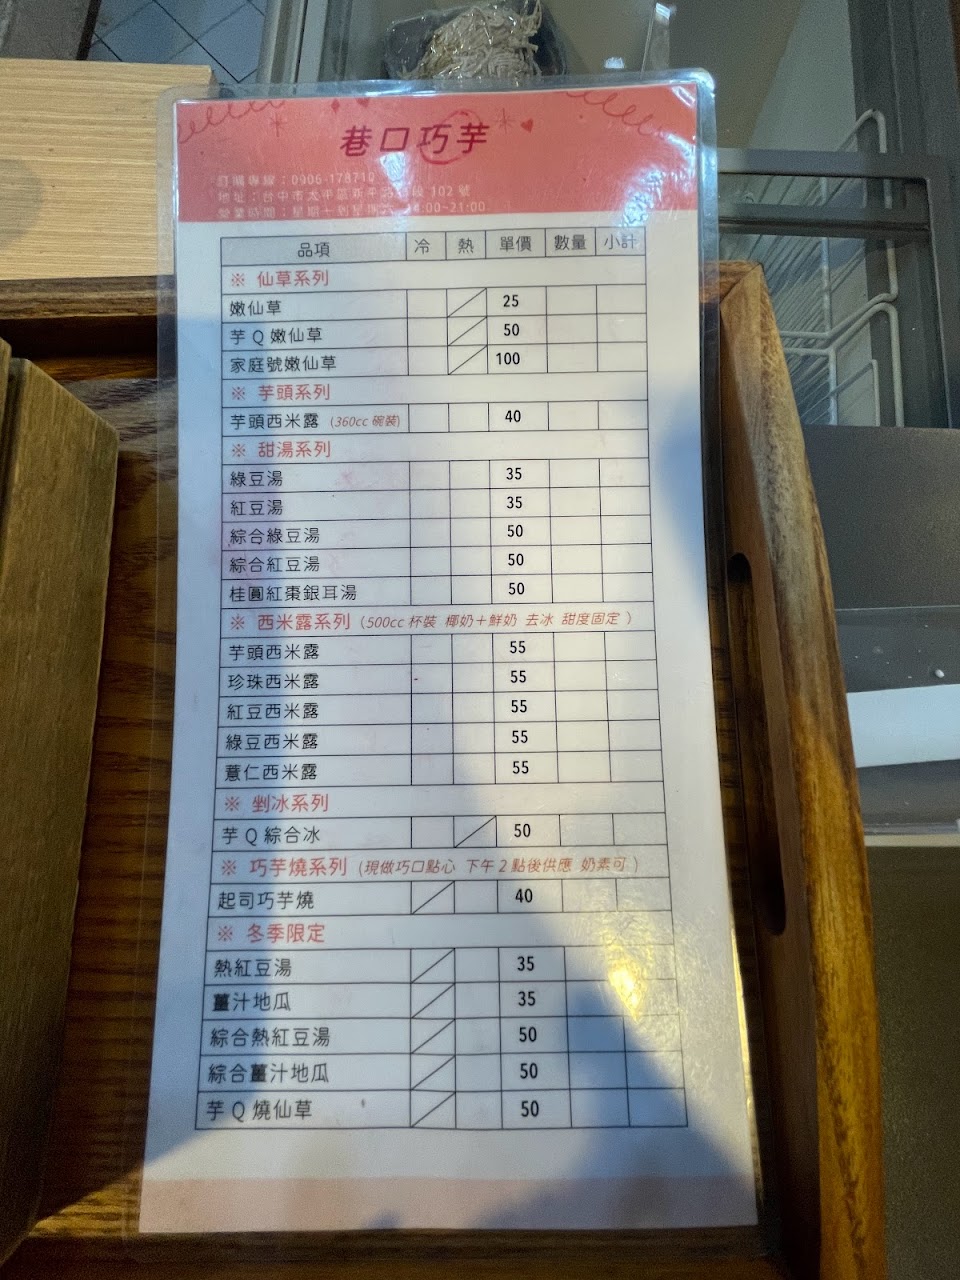 巷口巧芋
訂購專線：0906-178710
地址：台中市太平區新平路 段 102 號
營業時間：星期一到星期 :00~21:00
品項 冷 熱 單價 數量 小計
※ 仙草系列
嫩仙草 25
芋Q嫩仙草 50
家庭號嫩仙草 100
※ 芋頭系列
芋頭西米露 (360cc 碗裝) 40
※ 甜湯系列
綠豆湯 35
紅豆湯 35
綜合綠豆湯 50
綜合紅豆湯 50
桂圓紅棗銀耳湯 50
※ 西米露系列 (500cc 杯裝 椰奶+鮮奶 去冰 甜度固定)
芋頭西米露 55
珍珠西米露 55
紅豆西米露 55
綠豆西米露 55
薏仁西米露 55
※ 剉冰系列
芋Q綜合冰 50
※ 巧芋燒系列 (現做巧口點心 下午2點後供應 奶素可)
起司巧芋燒 40
※ 冬季限定
熱紅豆湯 35
薑汁地瓜 35
綜合熱紅豆湯 50
綜合薑汁地瓜 50
芋Q燒仙草 50